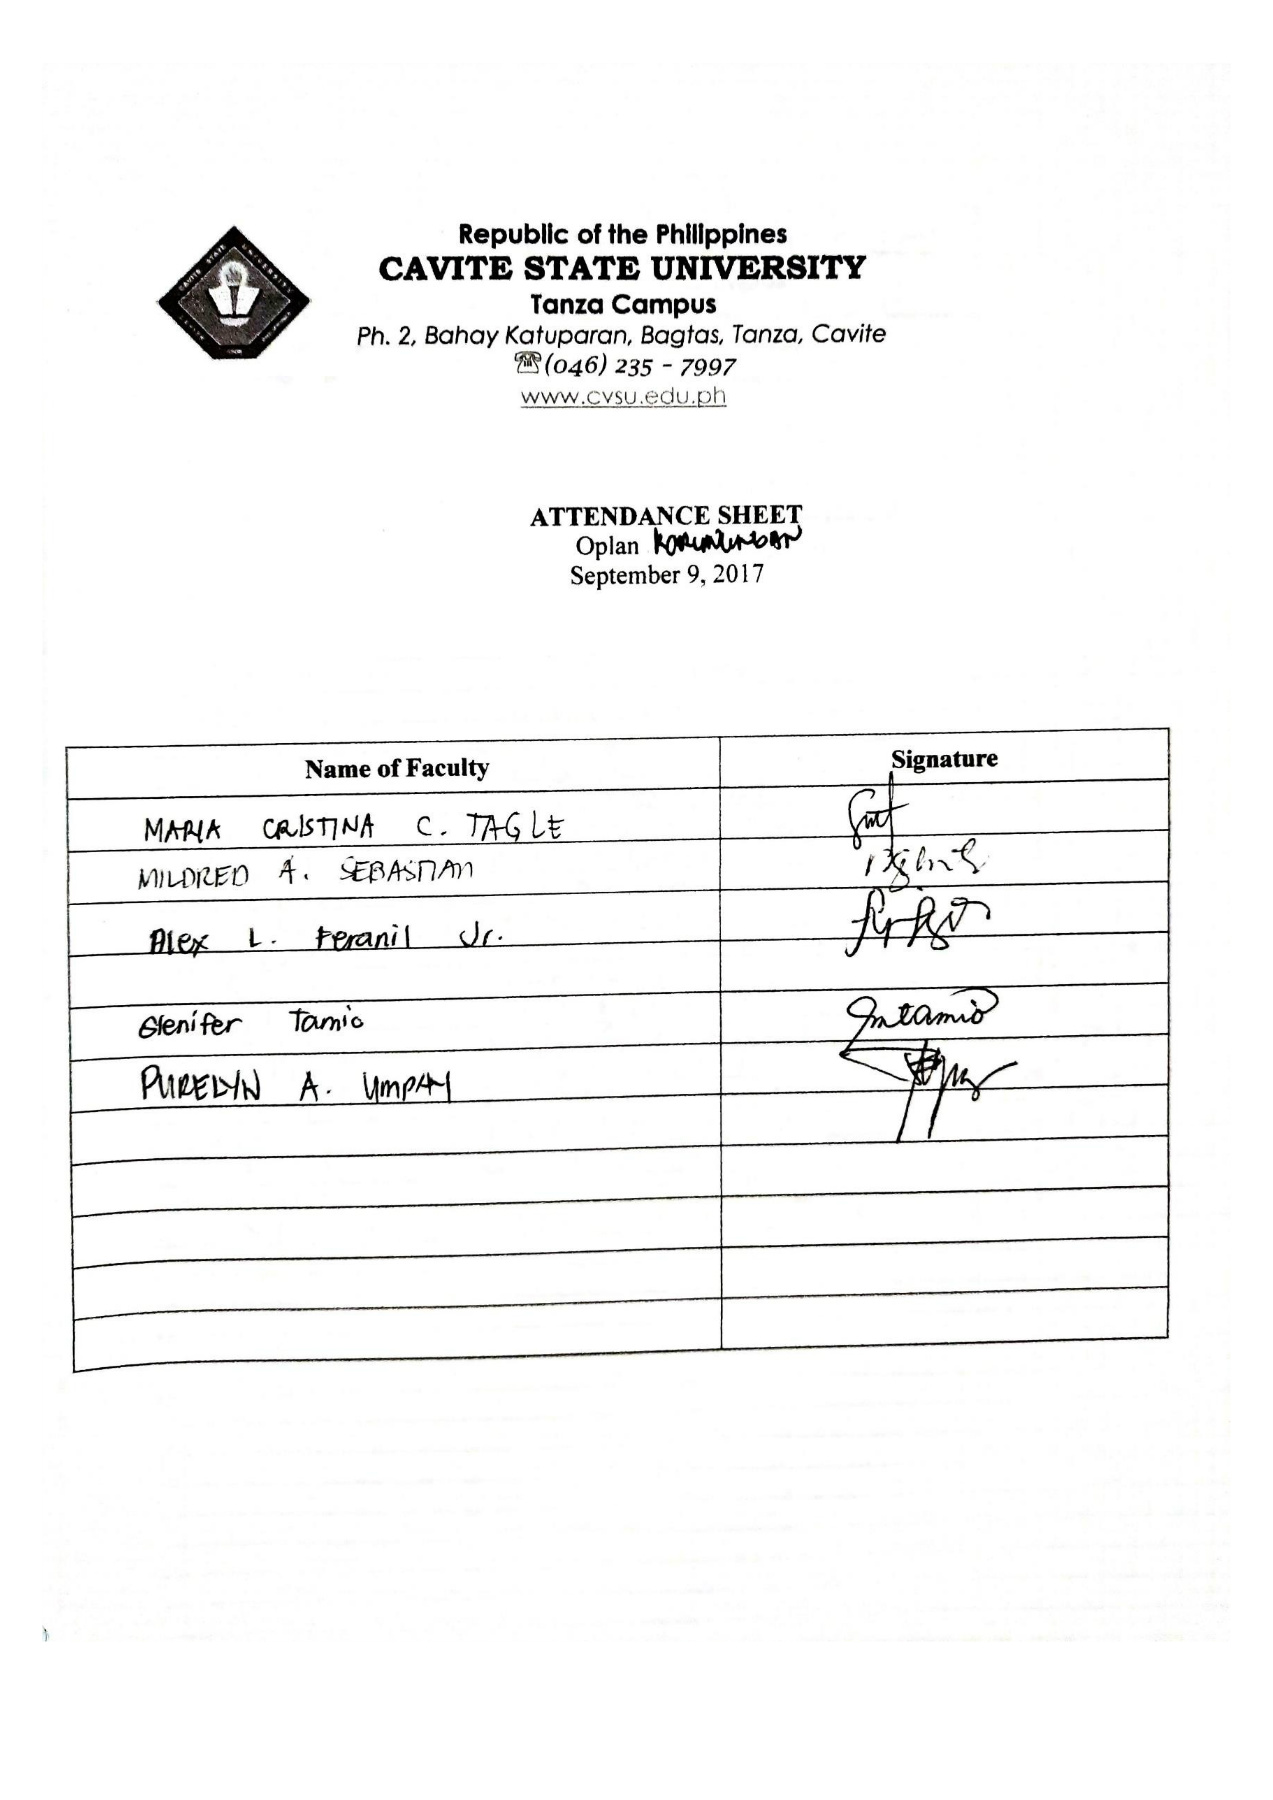 Republic of the Philippines
CAVITE STATE UNIVERSITY
Tanza Campus
Ph. 2, Bahay Katuparan, Bagtas, Tanza, Cavite
☎(046) 235 - 7997
www.cvsu.edu.ph
ATTENDANCE SHEET
Oplan
September 9, 2017
Name of Faculty Signature
MARIA CRISTINA C. TAGLE
MILDRED A. SEBASTIAN
Alex L. Feranil Jr.
Glenifer Tamio
PURELYN A. UMPAY